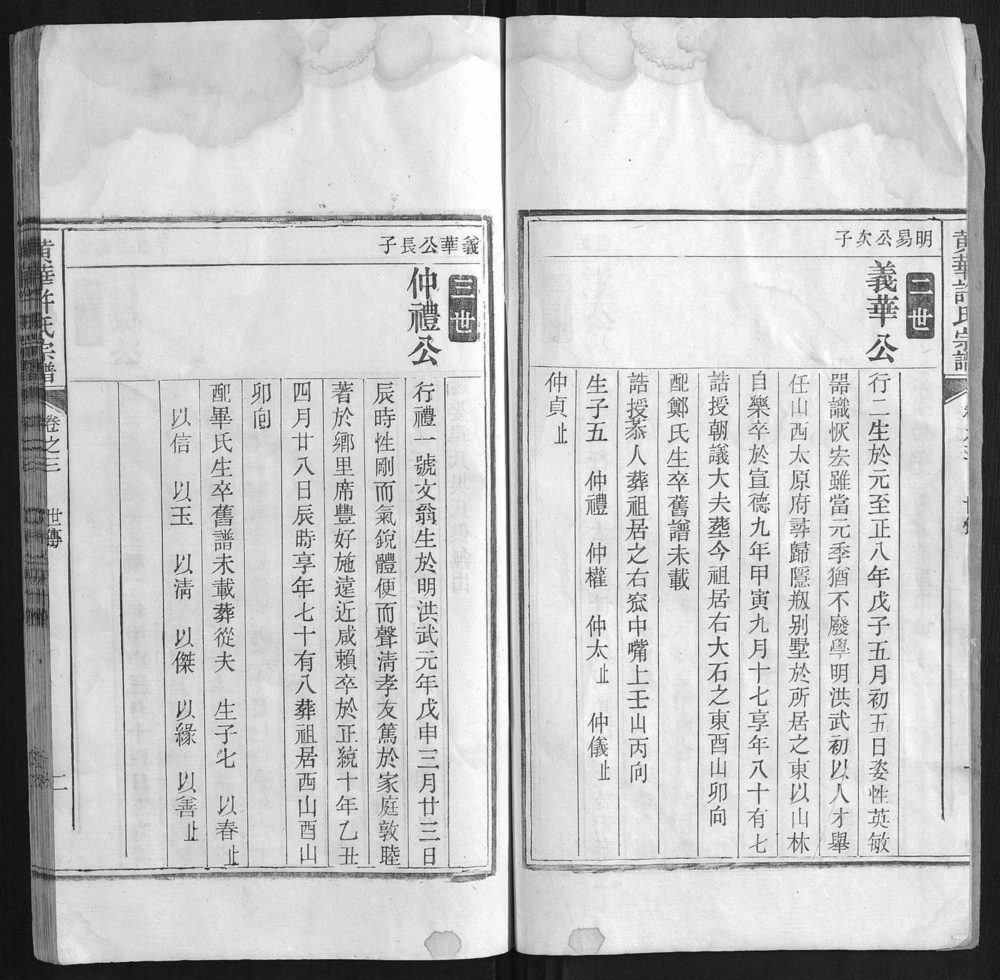 黃華許氏宗譜
明易公次子
二世
義華公
行二生於元至正八年戊子五月初五日姿性英敏
器識恢宏雖當元季猶不廢學明洪武初以人才舉
任山西太原府尋歸隱剏别墅於所居之東以山林
自樂卒於宣德九年甲寅九月十七享年八十有七
誥授朝議大夫葬今祖居右大石之東酉山卯向
配鄭氏生卒舊譜未載
誥授恭人葬祖居之右窊中嘴上壬山丙向
生子五 仲禮 仲權 仲太止 仲儀止
仲貞止
義華公長子
三世
仲禮公
行禮一號文翁生於明洪武元年戊申三月廿三日
辰時性剛而氣銳體便而聲清孝友篤於家庭敦睦
著於鄉里席豐好施遠近咸賴卒於正統十年乙丑
四月廿八日辰時享年七十有八葬祖居西山酉山
卯向
配畢氏生卒舊譜未載葬從夫 生子七 以春止
以信 以玉 以清 以傑 以緣 以善止
黃華許氏宗譜
卷之三 世傳 二